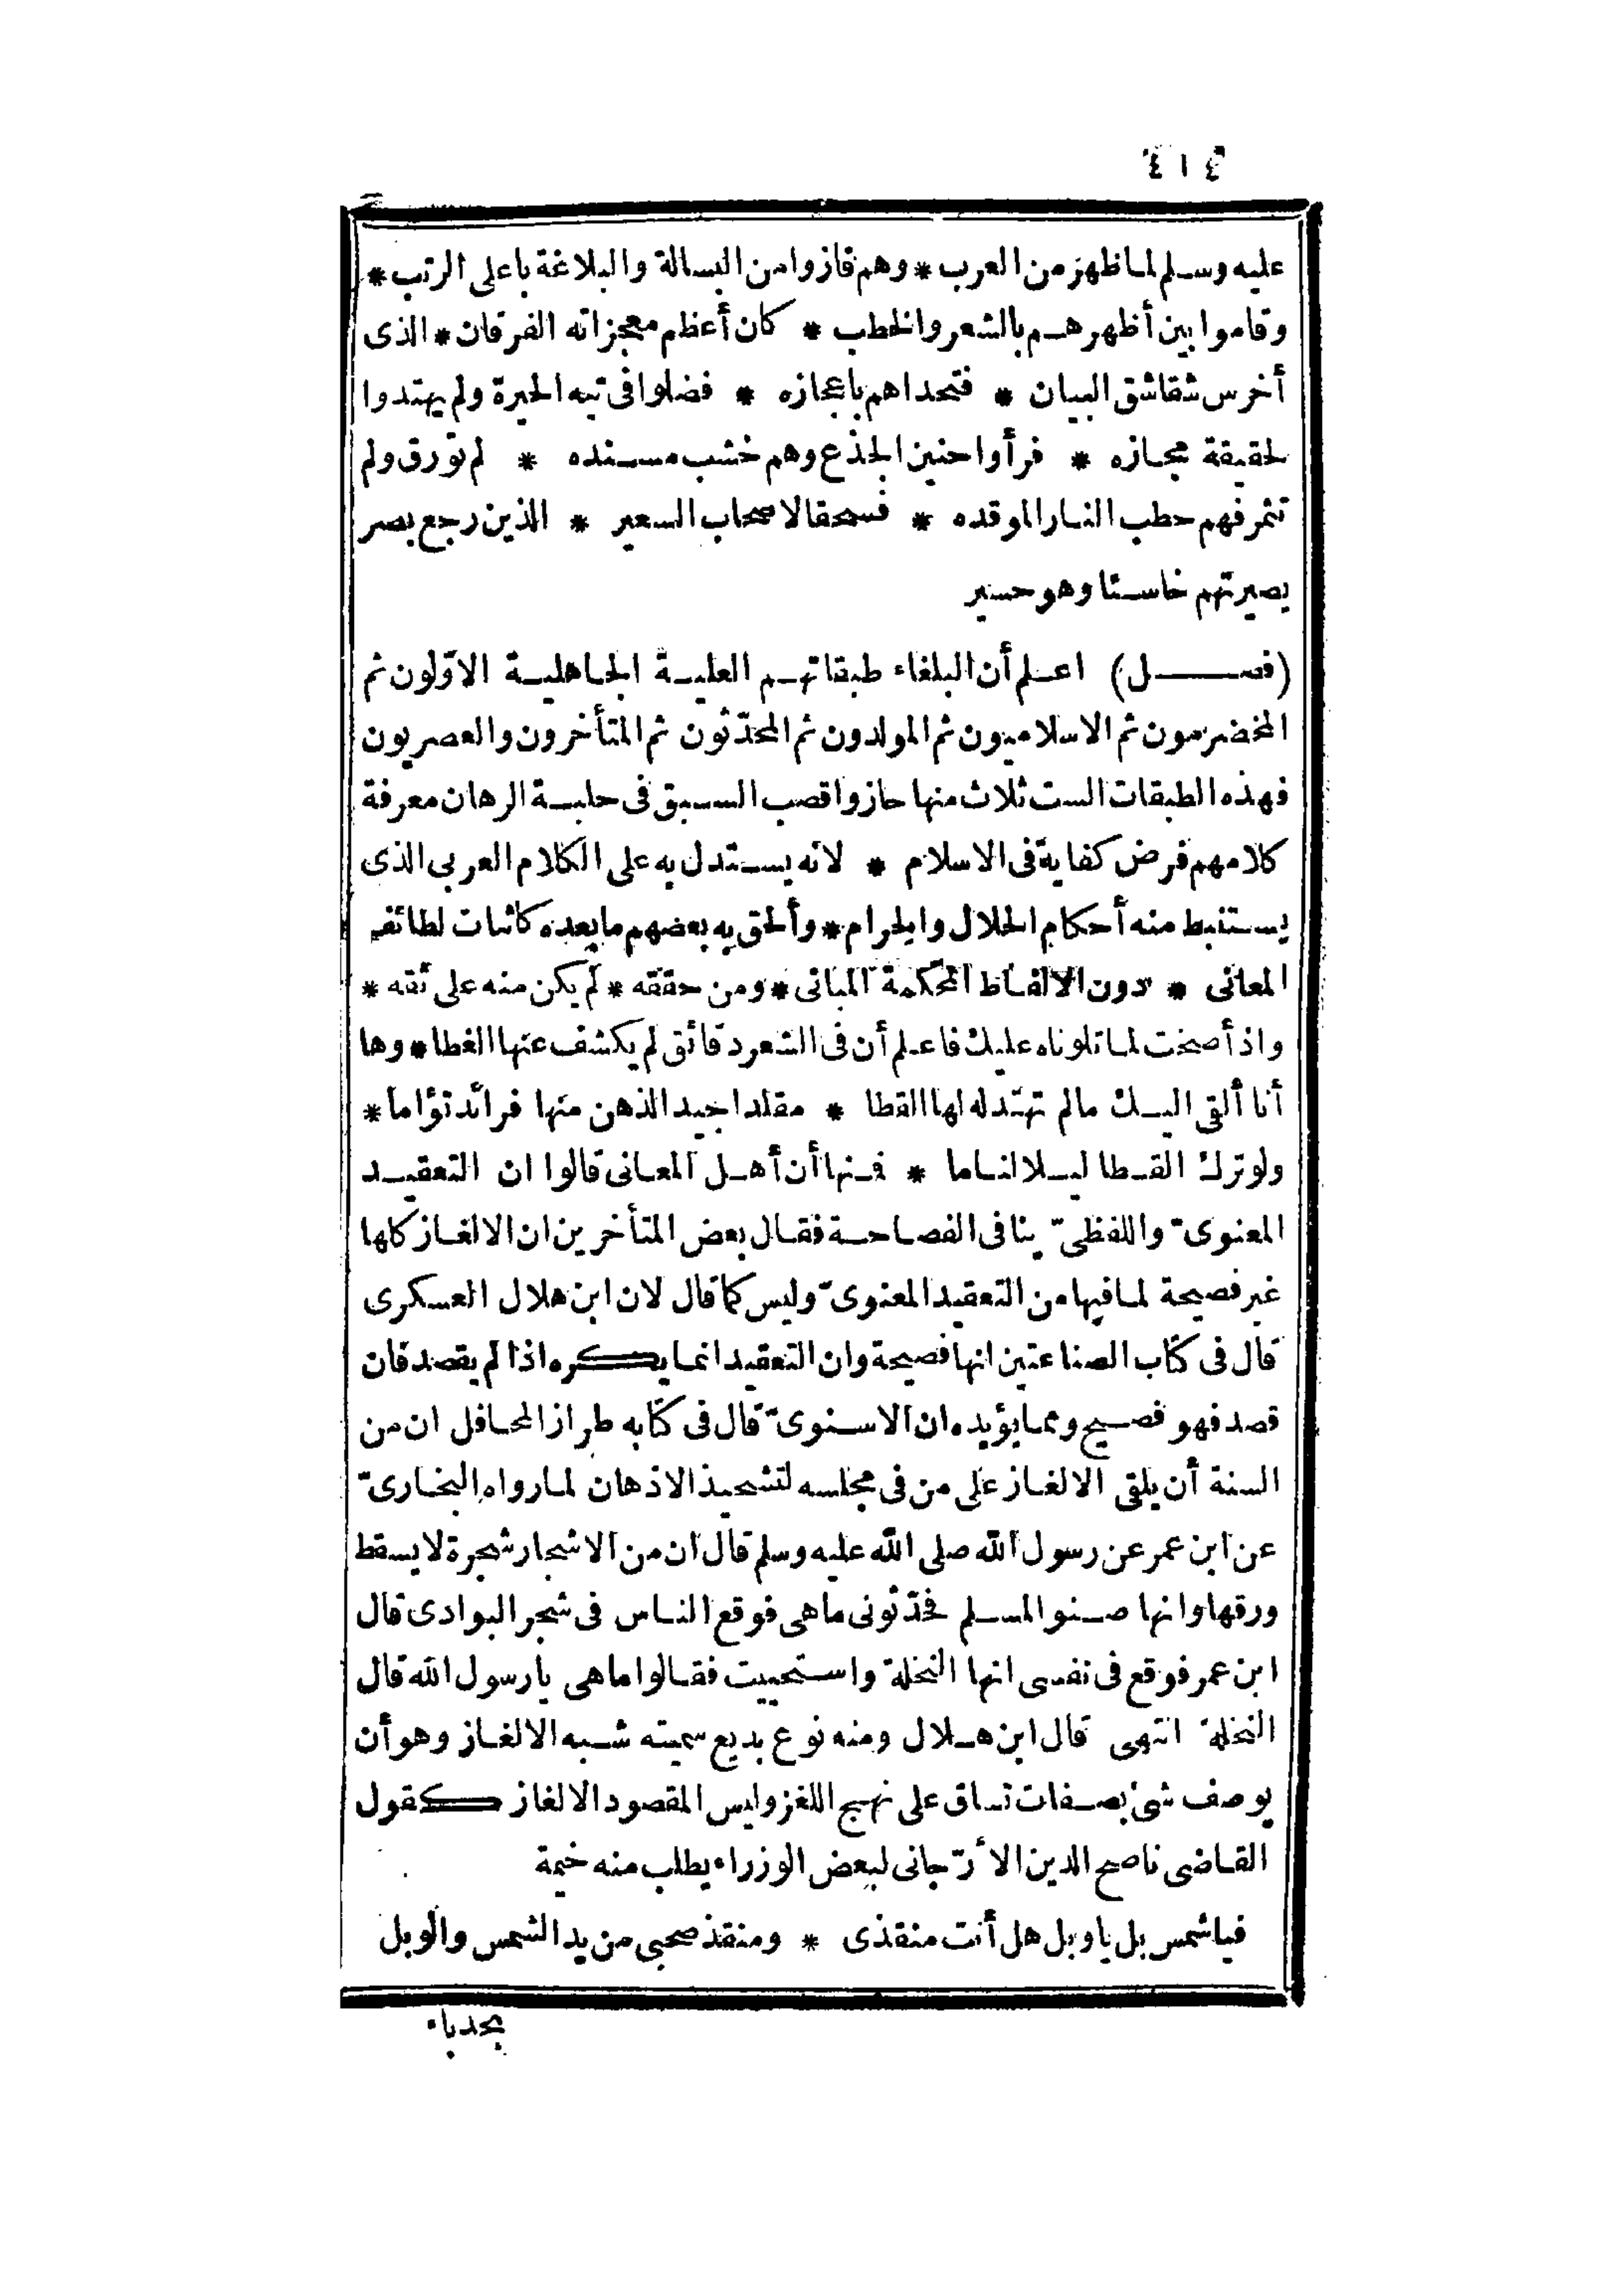 ٤١٤
عليه وسلم لما ظهر من العرب * وهم فازوا من البسالة والبلاغة باعلى الرتب *
وقاموا بين أظهرهم بالشعر والخطب * كان أعظم معجزاته الفرقان * الذى
أخرس شقاشق البيان * فتحداهم باعجازه * فضلوا فى تيه الحيرة ولم يهتدوا
لحقيقة مجازه * فرأوا حنين الجذع وهم خشب مسنده * لم تورق ولم
تثمر فهم حطب النار الموقده * فسحقا لاصحاب السعير * الذين رجع بصر
بصيرتهم خاسئا وهو حسير
(فصل) اعلم أن البلغاء طبقاتهم العلية الجاهلية الاوّلون ثم
المخضرمون ثم الاسلاميون ثم المولدون ثم المحدّثون ثم المتأخرون والعصريون
فهذه الطبقات الست ثلاث منها حازوا قصب السبق فى حلبة الرهان معرفة
كلامهم فرض كفاية فى الاسلام * لانه يستدل به على الكلام العربى الذى
يستنبط منه أحكام الحلال والحرام * وألحق به بعضهم ما بعده كاثبات لطائف
المعانى * دون الالفاظ المحكمة المبانى * ومن حققه * لم يكن منه على ثقه *
واذ أصخت لما تلوناه عليك فاعلم أن فى الشعر دقائق لم يكشف عنها الغطا * وها
أنا ألقى اليك مالم تهتد له لها القطا * مقلدا جيد الذهن منها فرائد تؤاما *
ولو ترك القطا ليلا لناما * فنها أن أهل المعانى قالوا ان التعقيد
المعنوىّ واللفظىّ ينافى الفصاحة فقال بعض المتأخرين ان الالغاز كلها
غير فصيحة لما فيها من التعقيد المعنوىّ وليس كما قال لان ابن هلال العسكرى
قال فى كتاب الصناعتين انها فصيحة وان التعقيد انما يكره اذا لم يقصد فان
قصد فهو فصيح ومما يؤيده ان الاسنوىّ قال فى كتابه طراز المحافل ان من
السنة أن يلقى الالغاز على من فى مجلسه لتشحيذ الاذهان لما رواه البخارىّ
عن ابن عمر عن رسول الله صلى الله عليه وسلم قال ان من الاشجار شجرة لا يسقط
ورقها وانها صنو المسلم فحدّثونى ما هى فوقع الناس فى شجر البوادى قال
ابن عمر فوقع فى نفسى انها النخلة واستحييت فقالوا ما هى يا رسول الله قال
النخلة انتهى قال ابن هلال ومنه نوع بديع سميته شبه الالغاز وهو أن
يوصف شئ بصفات تساق على نهج اللغز وليس المقصود الالغاز كقول
القاضى ناصح الدين الأرّجانى لبعض الوزراء يطلب منه خيمة
فيا شمس بل يا وبل هل أنت منقذى * ومنقذ صحبى من يد الشمس والوبل
بحدباء